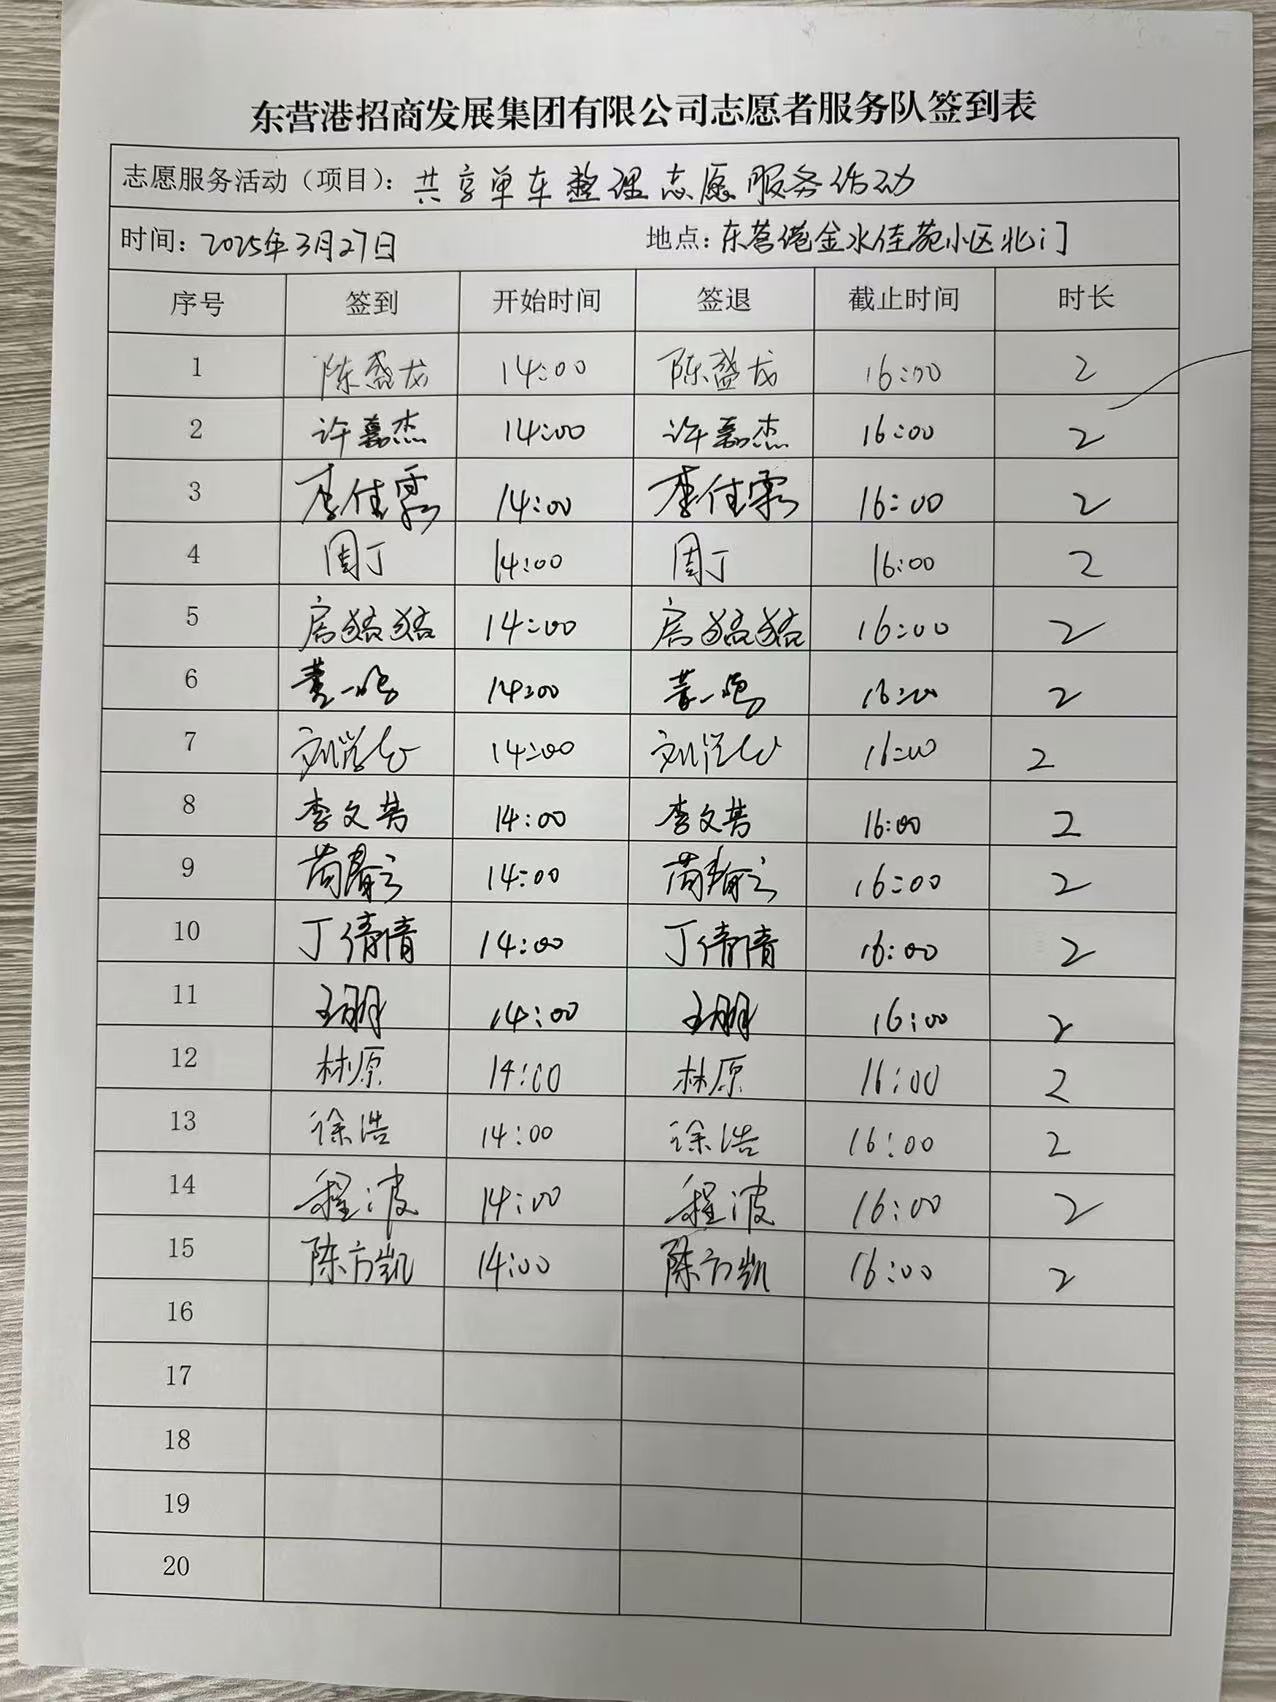 东营港招商发展集团有限公司志愿者服务队签到表
志愿服务活动（项目）：共享单车整理志愿服务活动
时间：2025年3月27日 地点：东营港金水佳苑小区北门
序号 签到 开始时间 签退 截止时间 时长
1 陈盛龙 14:00 陈盛龙 16:00 2
2 许嘉杰 14:00 许嘉杰 16:00 2
3 李佳霖 14:00 李佳霖 16:00 2
4 周丁 14:00 周丁 16:00 2
5 14:00 16:00 2
6 黄一鸣 14:00 黄一鸣 16:00 2
7 14:00 16:00 2
8 李文芳 14:00 李文芳 16:00 2
9 14:00 16:00 2
10 丁倩倩 14:00 丁倩倩 16:00 2
11 王朋 14:00 王朋 16:00 2
12 林原 14:00 林原 16:00 2
13 徐浩 14:00 徐浩 16:00 2
14 程波 14:00 程波 16:00 2
15 陈方凯 14:00 陈方凯 16:00 2
16
17
18
19
20